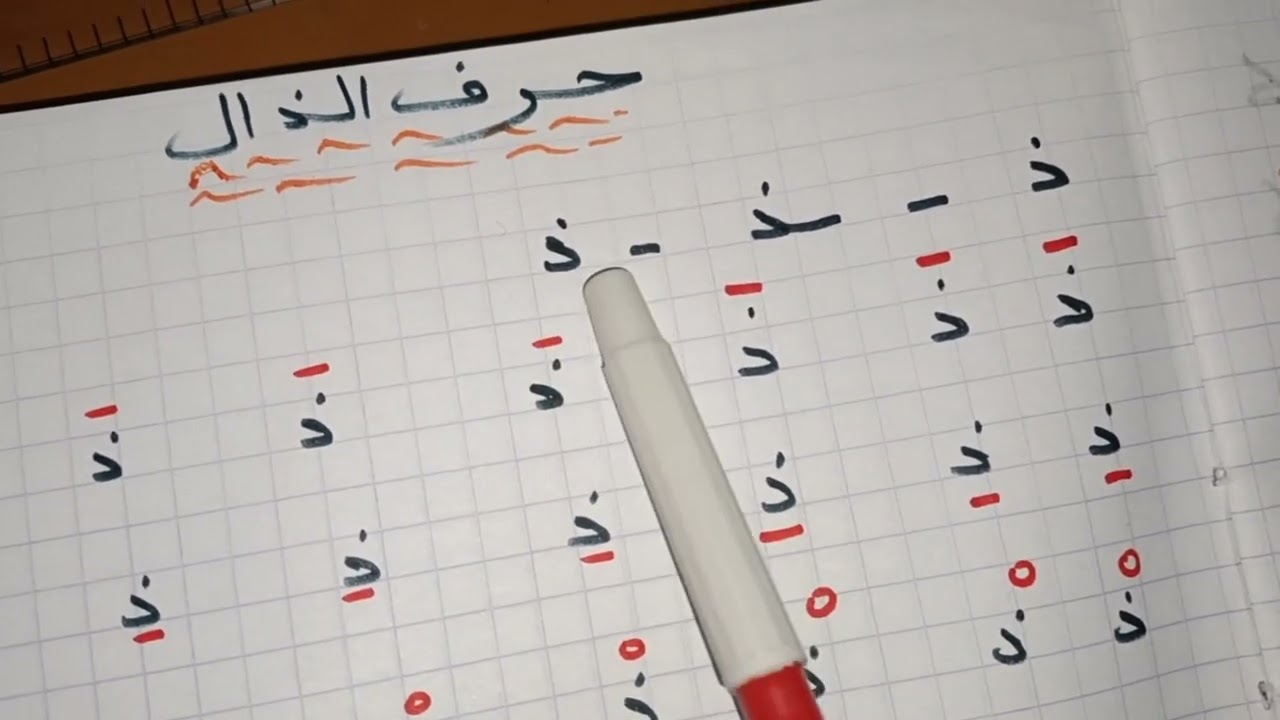 حرف الذال
ذ - ـذ - ذ
ذَ ذَ ذَ ذَ ذَ ذَ
ذِ ذِ ذِ ذِ ذِ ذِ
ذْ ذْ ذْ ذْ